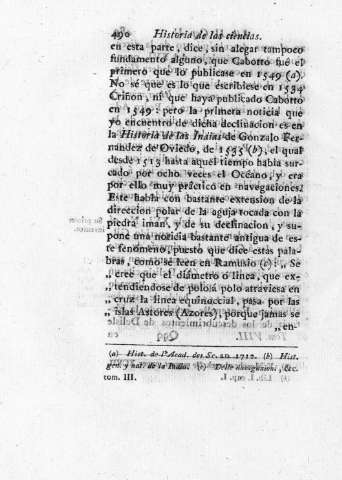 490 Historia de las ciencias.
en esta parte, dice, sin alegar tampoco
fundamento alguno, que Cabotto fué el
primero que lo publicase en 1549 (a).
No sé que es lo que escribiese en 1534
Criñon, ni que haya publicado Cabotto
en 1549: pero la primera noticia que
yo encuentro de dicha declinacion es en
la Historia de las Indias de Gonzalo Fer-
nandez de Oviedo, de 1535 (b), el qual
desde 1513 hasta aquel tiempo habia sur-
cado por ocho veces el Océano, y era
por ello muy práctico en navegaciones.
Este habla con bastante extension de la
direccion polar de la aguja tocada con la
piedra iman, y de su declinacion, y su-
pone una noticia bastante antigua de es-
te fenómeno, puesto que dice estas pala-
bras, como se leen en Ramusio (c): „ Se
„ cree que el diámetro o linea, que ex-
„ tendiendose de polo á polo atraviesa en
„ cruz la linea equinoccial, pasa por las
„ islas Astores (Azores), porque jamas se
„ en-
(a) Hist. de l'Acad. des Sc. an. 1712. (b) Hist.
gen. y nat. de la India. (c) Delle navigazioni, &c.
tom. III.